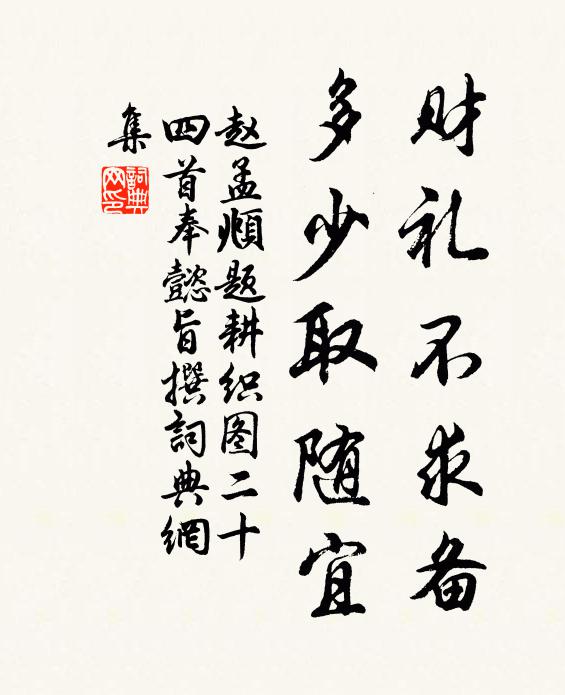 财礼不求备
多少取随宜
赵孟頫题耕织图二十
四首奉懿旨撰詞典網
集
詞典网印